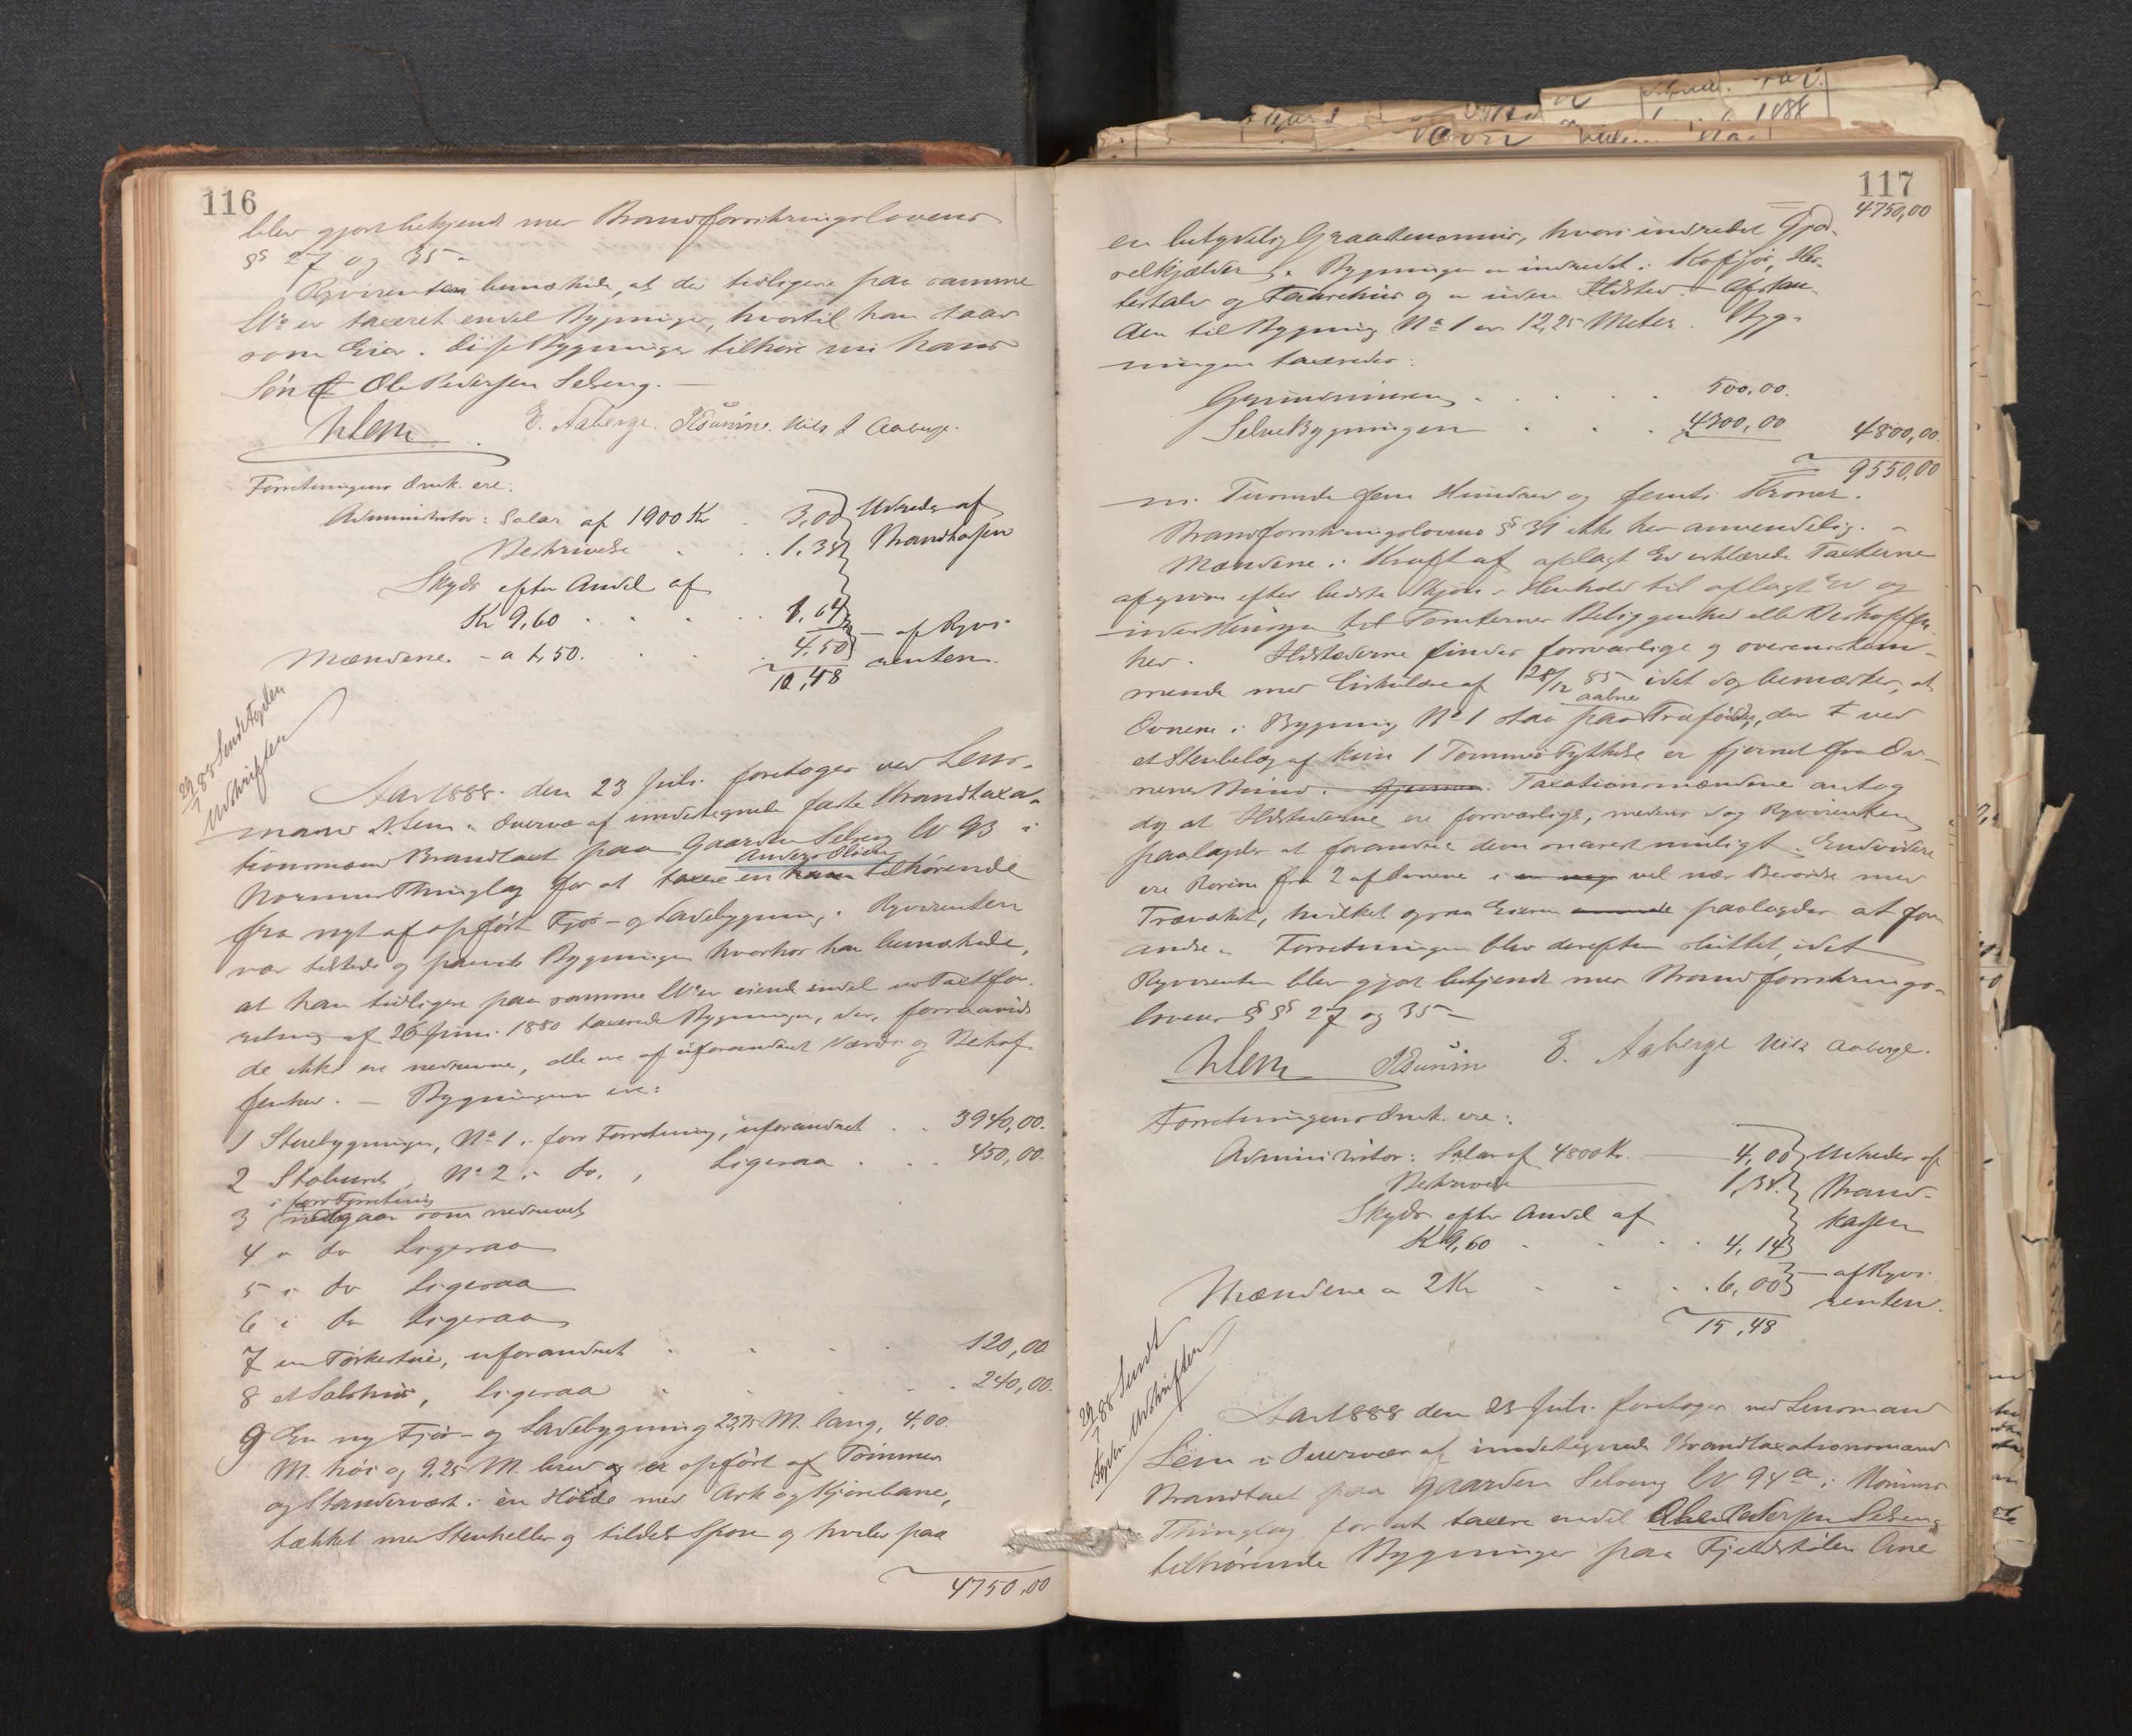 116
blev gjort bekjendt med Brandforsikringslovens
§§ 27 og 35 –
Rqvirenten bemærkede, at der tidligere paa samme
No er taxeret endel Bygninger, hvortil han staar
som Eier. Disse Bygninger tilhøre nu hans
Søn Ole Pedersen Selseng. –
NLem E. Aaberge. Nils J Aaberge.
Forretningens Omk. ere:
Administrator: Salær af 1900 Kr . 3,00 Udredes af
Beskrivelse . . . 1,34 Brandkassen
Skyds efter Andel af
Kr 9,60 . . . . 1,64
Mændene – a 1,50. . . . 4,50 – af Rqvi-
10,48 renten.
29/7 88 Sendt Fogden
Udskriften
Aar 1888 den 23 Juli foretoges ved Lens-
mand N. Lem i Overvær af undertegnede faste Brandtaxa-
tionsmænd Brandtaxt paa Gaarden Selseng LN 93 i
Anders Olsen
Norums Thinglag for at taxere en ham tilhørende
fra nyt af opført Fjøs- og Ladebygning. Rqvirenten
var tilstede og paaviste Bygningen hvorhos han bemærkede,
at han tidligere paa samme No er eiende endel ved Taxtfor-
retning af 26 Juni 1880 taxerede Bygninger, der, forsaavidt
de ikke ere nedrevne, alle ere af uforandret Værdi og Beskaf-
fenhed. – Bygningerne ere:
1 Stuebygningen, No 1 i forr Forretning, uforandret . . 3940,00.
2 Stabured, No 2 i do., Ligesaa . . . 450,00.
i forr Forretning
3 udgaar som nedrevet
4 i do Ligesaa
5 i do Ligesaa
6 i do Ligesaa
7 en Tørkestue, uforandret . . . . 120,00
8 et Salshus, Ligesaa . . . . 240,00.
9 En ny Fjøs- og Ladebygning 23,75 M. lang, 4,00
M. høi og 9,25 M. bred og er opført af Tømmer
og Standerværk i en Høide med Ark og Kjørebane,
tækket med Stenheller og tildels Spon og hviler paa
4750,00
117
4750,00
en betydelig Graastensmur, hvori indredet Gjød-
selkjælder. Bygningen er indredet i Kofjøs, Hes-
testald og Faarehus og er uden Ildsted. – Afstan-
den til Bygning No 1 er 12,25 Meter. Byg-
ningen taxeredes:
Grundmuren . . . . 500,00.
Selve Bygningen . . . 4300,00 4800,00.
9550,00
ni Tusinde fem Hundred og femti Kroner.
Brandforsikringslovens § 31 ikke her anvendelig. –
Mændene i Kraft af aflagt Ed erklærede Taxterne
afgivne efter bedste Skjøn i Henhold til aflagt Ed og
uden Hensyn til Tomternes Beliggenhed eller Beskaffen-
hed. Ildstederne findes forsvarlige og overensstem-
mende med Cirkulære af 28/12 85 idet dog bemærkes, at
aabne
Ovnene i Bygning No 1 staa paa Træfødder, der ved
et Stenbelæg af kun 1 Tommes Tykkelse er fjernet fra Ov-
nenes Bund. Taxationsmændene antog
dog at Ildstederne ere forsvarlige, medens dog Rqvirenten
paalagdes at forandre dem snarest muligt. Endvidere
ere Rørene fra 2 af Ovnene i vel nær Berørelse med
Træværket, hvilket ogsaa Eieren paalagdes at for-
andre. Forretningen blev derefter sluttet, idet
Rqvirenten blev gjort bekjendt med Brandforsikrings-
lovens §§ 27 og 35 –
NLem E. Aaberge Nils Aaberge.
Forretningens Omk. ere:
Administrator: Salær af 4800 Kr. 4,00 Udredes af
Beskrivelse 1,34. Brand-
Skyds efter Andel af kassen
Kr 9,60 . . . 4,14
Mændene a 2 Kr . . . 6,00 – af Rqvi-
renten.
15,48
29/7 88 Sendt
Fogden Udskriften
Aar 1888 den 23 Juli foretoges ved Lensmand
Lem i Overvær af undertegnede Brandtaxationsmænd
Brandtaxt paa Gaarden Selseng LN 94a i Norums
Thinglag for at taxere endel Ole Pedersen Selseng
tilhørende Bygninger paa Fjeldstølen